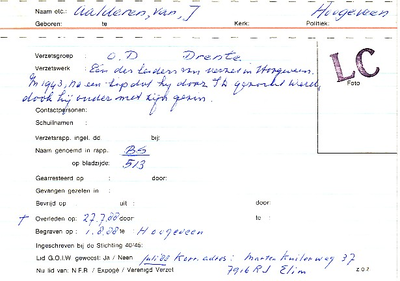 Naam etc.: Aalderen, van, J Hoogeveen
Geboren: te Kerk: Politiek:
Verzetsgroep : O.D Drente
Verzetswerk : Een der leiders van verzet in Hoogeveen.
In 1943, na een tip dat hij door gezocht werd,
dook hij onder met zijn gezin.
Contactpersonen:
Schuilnaam :
LC
Foto
Verzetsrapp. ingel. dd. bij:
Naam genoemd in rapp. BS
op bladzijde: 513
Gearresteerd op : door:
Gevangen gezeten in :
Bevrijd op : uit : door:
† Overleden op : 27.7.88 door: te :
Begraven op : 1.8.88 te : Hoogeveen
Ingeschreven bij de Stichting 40/45:
Lid G.O.I.W. geweest: Ja / Neen juli 88 Korr. adres: Marten Kuilerweg 37
Nu lid van: N.F.R / Expogé / Verenigd Verzet 7916 RJ Elim